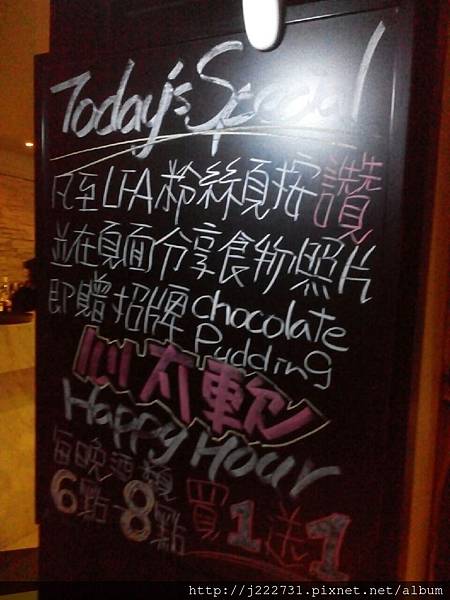 Today's Special
凡至LFA粉絲頁按讚
並在頁面分享食物照片
即贈招牌chocolate
Pudding
心太軟
Happy Hour
每晚酒類
6點-8點 買1送1
http://j222731.pixnet.net/album